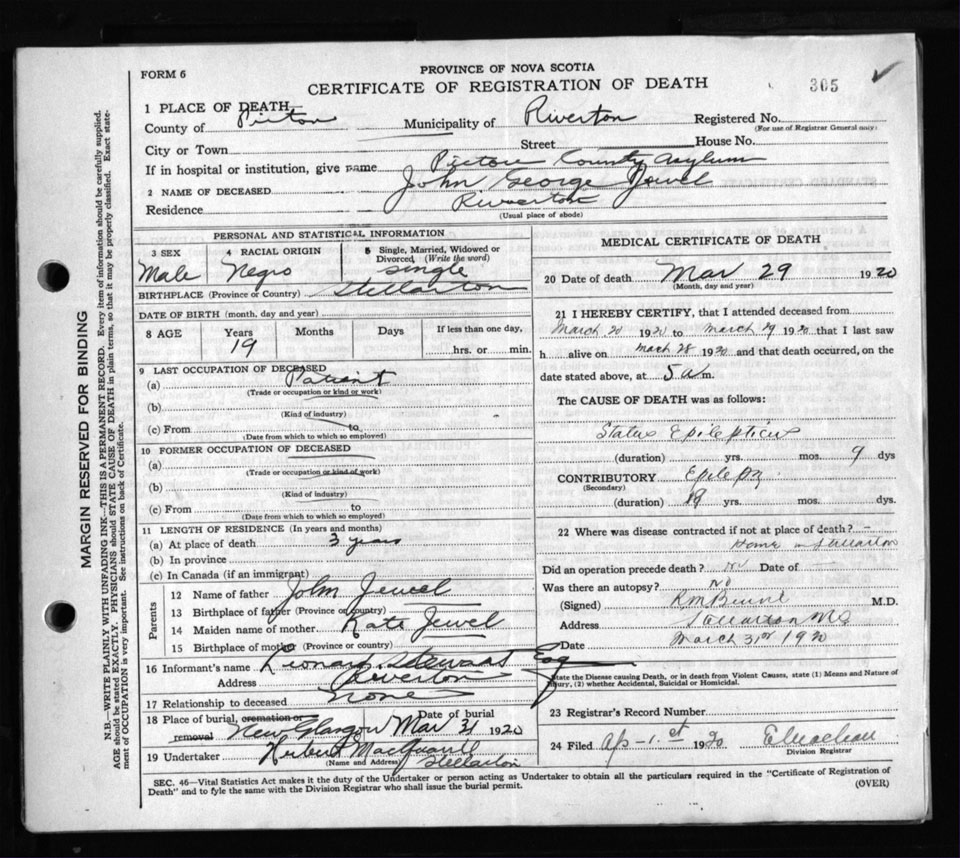 FORM 6
PROVINCE OF NOVA SCOTIA
CERTIFICATE OF REGISTRATION OF DEATH
305 ✓
1 PLACE OF DEATH
County of Pictou Municipality of Riverton Registered No.
(For use of Registrar General only)
City or Town Street House No.
If in hospital or institution, give name Pictou County Asylum
2 NAME OF DECEASED John George Jewel
Residence Riverton
(Usual place of abode)
PERSONAL AND STATISTICAL INFORMATION
3 SEX 4 RACIAL ORIGIN 5 Single, Married, Widowed or Divorced, (Write the word)
Male Negro single
BIRTHPLACE (Province or Country) Stellarton
DATE OF BIRTH (month, day and year)
8 AGE Years Months Days If less than one day,
19 hrs. or min.
9 LAST OCCUPATION OF DECEASED
(a) Patient
(Trade or occupation or kind or work)
(b)
(Kind of industry)
(c) From to
(Date from which to which so employed)
10 FORMER OCCUPATION OF DECEASED
(a)
(Trade or occupation or kind of work)
(b)
(Kind of industry)
(c) From to
(Date from which to which so employed)
11 LENGTH OF RESIDENCE (In years and months)
(a) At place of death 3 years
(b) In province
(c) In Canada (if an immigrant)
Parents
12 Name of father John Jewel
13 Birthplace of father (Province or country)
14 Maiden name of mother Kate Jewel
15 Birthplace of mother (Province or country)
16 Informant's name Esq
Address Riverton
17 Relationship to deceased none
18 Place of burial, cremation or removal New Glasgow Date of burial Mar 31 1920
19 Undertaker Stellarton
(Name and Address)
MEDICAL CERTIFICATE OF DEATH
20 Date of death Mar 29 1920
(Month, day and year)
21 I HEREBY CERTIFY, that I attended deceased from
March 20 1920 to March 29 1920 that I last saw
h alive on March 28 1920 and that death occurred, on the
date stated above, at 5 a m.
The CAUSE OF DEATH was as follows:
Status Epilepticus
(duration) yrs. mos. 9 dys
CONTRIBUTORY Epilepsy
(Secondary)
(duration) 19 yrs. mos. dys.
22 Where was disease contracted if not at place of death?
Home in Stellarton
Did an operation precede death? No Date of
Was there an autopsy? No
(Signed) M.D.
Address Stellarton
Date March 31st 1920
State the Disease causing Death, or in death from Violent Causes, state (1) Means and Nature of Injury, (2) whether Accidental, Suicidal or Homicidal.
23 Registrar's Record Number
24 Filed Ap 1st 1920
Division Registrar
SEC. 46—Vital Statistics Act makes it the duty of the Undertaker or person acting as Undertaker to obtain all the particulars required in the "Certificate of Registration of
Death" and to fyle the same with the Division Registrar who shall issue the burial permit. (OVER)
MARGIN RESERVED FOR BINDING
N.B.—WRITE PLAINLY WITH UNFADING INK—THIS IS A PERMANENT RECORD. Every item of information should be carefully supplied.
AGE should be stated EXACTLY. PHYSICIANS should STATE CAUSE OF DEATH in plain terms, so that it may be properly classified. Exact statement
of OCCUPATION is very important. See instructions on back of Certificate.